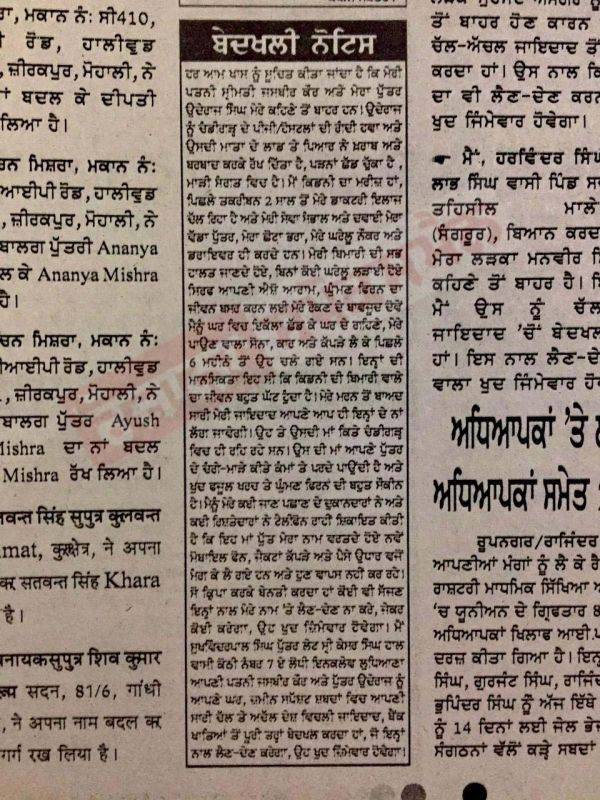 ਰਾ, ਮਕਾਨ ਨੰ: ਸੀ410,
ਰੋਡ, ਹਾਲੀਵੁਡ
, ਜ਼ੀਰਕਪੁਰ, ਮੋਹਾਲੀ, ਨੇ
ਬਦਲ ਕੇ ਦੀਪਤੀ
ਲਿਆ ਹੈ।
ਚਨ ਮਿਸ਼ਰਾ, ਮਕਾਨ ਨੰ:
ਆਈਪੀ ਰੋਡ, ਹਾਲੀਵੁਡ
, ਜ਼ੀਰਕਪੁਰ, ਮੋਹਾਲੀ, ਨੇ
ਬਾਲਗ ਪੁੱਤਰੀ Ananya
ਲ ਕੇ Ananya Mishra
ਹੈ।
ਚਨ ਮਿਸ਼ਰਾ, ਮਕਾਨ ਨੰ:
ਆਈਪੀ ਰੋਡ, ਹਾਲੀਵੁਡ
, ਜ਼ੀਰਕਪੁਰ, ਮੋਹਾਲੀ, ਨੇ
ਬਾਲਗ ਪੁੱਤਰ Ayush
Mishra ਦਾ ਨਾਂ ਬਦਲ
Mishra ਰੱਖ ਲਿਆ ਹੈ।
लवन्त सिंह सुपुत्र कुलवन्त
mat, कुरुक्षेत्र, ने अपना
कर सतवन्त सिंह Khara
है।
नायक सुपुत्र शिव कुमार
सदन, 81/6, गांधी
, ने अपना नाम बदल कर
गर्ग रख लिया है।
ਬੇਦਖਲੀ ਨੋਟਿਸ
ਹਰ ਆਮ ਖਾਸ ਨੂੰ ਸੂਚਿਤ ਕੀਤਾ ਜਾਂਦਾ ਹੈ ਕਿ ਮੇਰੀ
ਪਤਨੀ ਸ੍ਰੀਮਤੀ ਜਸਬੀਰ ਕੌਰ ਅਤੇ ਮੇਰਾ ਪੁੱਤਰ
ਉਦੇਰਾਜ ਸਿੰਘ ਮੇਰੇ ਕਹਿਣੇ ਤੋਂ ਬਾਹਰ ਹਨ। ਉਦੇਰਾਜ
ਨੂੰ ਚੰਡੀਗੜ੍ਹ ਦੇ ਪੀਜੀ/ਹੋਸਟਲਾਂ ਦੀ ਗੰਦੀ ਹਵਾ ਅਤੇ
ਉਸਦੀ ਮਾਤਾ ਦੇ ਲਾਡ ਤੇ ਪਿਆਰ ਨੇ ਖ਼ਰਾਬ ਅਤੇ
ਬਰਬਾਦ ਕਰਕੇ ਰੱਖ ਦਿੱਤਾ ਹੈ, ਪੜਨਾਂ ਛੱਡ ਚੁੱਕਾ ਹੈ ,
ਮਾੜੀ ਸੰਗਤ ਵਿਚ ਹੈ। ਮੈਂ ਕਿਡਨੀ ਦਾ ਮਰੀਜ਼ ਹਾਂ,
ਪਿਛਲੇ ਤਕਰੀਬਨ 2 ਸਾਲ ਤੋਂ ਮੇਰੇ ਡਾਕਟਰੀ ਇਲਾਜ
ਚੱਲ ਰਿਹਾ ਹੈ ਅਤੇ ਮੇਰੀ ਸੇਵਾ ਸੰਭਾਲ ਅਤੇ ਦਵਾਈ ਮੇਰਾ
ਵੱਡਾ ਪੁੱਤਰ, ਮੇਰਾ ਛੋਟਾ ਭਰਾ, ਮੇਰੇ ਘਰੇਲੂ ਨੌਕਰ ਅਤੇ
ਡਰਾਇਵਰ ਹੀ ਕਰਦੇ ਹਨ। ਮੇਰੀ ਬਿਮਾਰੀ ਦੀ ਸਭ
ਹਾਲਤ ਜਾਣਦੇ ਹੋਏ, ਬਿਨਾਂ ਕੋਈ ਘਰੇਲੂ ਲੜਾਈ ਹੋਏ
ਸਿਰਫ ਆਪਣੀ ਐਸ਼ੋ ਆਰਾਮ, ਘੁੰਮਣ ਫਿਰਨ ਦਾ
ਜੀਵਨ ਬਸਰ ਕਰਨ ਲਈ ਮੇਰੇ ਰੋਕਣ ਦੇ ਬਾਵਜੂਦ ਦੋਵੇਂ
ਮੈਨੂੰ ਘਰ ਵਿਚ ਇਕੱਲਾ ਛੱਡ ਕੇ ਘਰ ਦੇ ਗਹਿਣੇ, ਮੇਰੇ
ਪਾਉਣ ਵਾਲਾ ਸੋਨਾ, ਕਾਰ ਅਤੇ ਕੱਪੜੇ ਲੈ ਕੇ ਪਿਛਲੇ
6 ਮਹੀਨੇ ਤੋਂ ਉਹ ਚਲੇ ਗਏ ਸਨ। ਇਨ੍ਹਾਂ ਦੀ
ਮਾਨਸਿਕਤਾ ਇਹ ਸੀ ਕਿ ਕਿਡਨੀ ਦੀ ਬਿਮਾਰੀ ਵਾਲੇ
ਦਾ ਜੀਵਨ ਬਹੁਤ ਘੱਟ ਹੁੰਦਾ ਹੈ। ਮੇਰੇ ਮਰਨ ਤੋਂ ਬਾਅਦ
ਸਾਰੀ ਮੇਰੀ ਜਾਇਦਾਦ ਆਪਣੇ ਆਪ ਹੀ ਇਨ੍ਹਾਂ ਦੇ ਨਾਂ
ਲੱਗ ਜਾਵੇਗੀ। ਉਹ ਤੇ ਉਸਦੀ ਮਾਂ ਕਿਤੇ ਚੰਡੀਗੜ੍ਹ
ਵਿਚ ਹੀ ਰਹਿ ਰਹੇ ਸਨ। ਉਸ ਦੀ ਮਾਂ ਆਪਣੇ ਪੁੱਤਰ
ਦੇ ਚੰਗੇ-ਮਾੜੇ ਕੀਤੇ ਕੰਮਾਂ ਤੇ ਪਰਦੇ ਪਾਉਂਦੀ ਹੈ ਅਤੇ
ਖੁਦ ਫਜੂਲ ਖਰਚ ਤੇ ਘੁੰਮਣ ਫਿਰਨ ਦੀ ਬਹੁਤ ਸ਼ੌਕੀਨ
ਹੈ। ਮੈਨੂੰ ਮੇਰੇ ਕਈ ਜਾਣ ਪਛਾਣ ਦੇ ਦੁਕਾਨਦਾਰਾਂ ਨੇ ਅਤੇ
ਕਈ ਰਿਸ਼ਤੇਦਾਰਾਂ ਨੇ ਟੈਲੀਫੋਨ ਰਾਹੀਂ ਸ਼ਿਕਾਇਤ ਕੀਤੀ
ਹੈ ਕਿ ਇਹ ਮਾਂ ਪੁੱਤ ਮੇਰਾ ਨਾਮ ਵਰਤਦੇ ਹੋਏ ਨਵੇਂ
ਮੋਬਾਇਲ ਫੋਨ, ਜੈਕਟਾਂ ਕੱਪੜੇ ਅਤੇ ਪੈਸੇ ਉਧਾਰ ਵਜੋਂ
ਮੰਗ ਕੇ ਲੈ ਗਏ ਹਨ ਅਤੇ ਹੁਣ ਵਾਪਸ ਨਹੀਂ ਕਰ ਰਹੇ।
ਸੋ ਕ੍ਰਿਪਾ ਕਰਕੇ ਬੇਨਤੀ ਕਰਦਾ ਹਾਂ ਕੋਈ ਵੀ ਸੱਜਣ
ਇਨ੍ਹਾਂ ਨਾਲ ਮੇਰੇ ਨਾਮ 'ਤੇ ਲੈਣ-ਦੇਣ ਨਾ ਕਰੇ, ਜੇਕਰ
ਕੋਈ ਕਰੇਗਾ, ਉਹ ਖੁਦ ਜਿੰਮੇਵਾਰ ਹੋਵੇਗਾ। ਮੈਂ
ਸੁਖਵਿੰਦਰਪਾਲ ਸਿੰਘ ਪੁੱਤਰ ਲੇਟ ਸ੍ਰੀ ਕੇਸਰ ਸਿੰਘ ਹਾਲ
ਵਾਸੀ ਕੋਠੀ ਨੰਬਰ 7 ਏ ਲੋਧੀ ਇਨਕਲੇਵ ਲੁਧਿਆਣਾ
ਆਪਣੀ ਪਤਨੀ ਜਸਬੀਰ ਕੌਰ ਅਤੇ ਪੁੱਤਰ ਉਦੇਰਾਜ ਨੂੰ
ਆਪਣੇ ਘਰ, ਜ਼ਮੀਨ ਸਪੱਸ਼ਟ ਸ਼ਬਦਾਂ ਵਿਚ ਆਪਣੀ
ਸਾਰੀ ਚੱਲ ਤੇ ਅਚੱਲ ਦੇਸ਼ ਵਿਚਲੀ ਜਾਇਦਾਦ, ਬੈਂਕ
ਖਾਤਿਆਂ ਤੋਂ ਪੂਰੀ ਤਰ੍ਹਾਂ ਬੇਦਖਲ ਕਰਦਾ ਹਾਂ, ਜੋ ਇਨ੍ਹਾਂ
ਨਾਲ ਲੈਣ-ਦੇਣ ਕਰੇਗਾ, ਉਹ ਖੁਦ ਜਿੰਮੇਵਾਰ ਹੋਵੇਗਾ।
ਤੋਂ ਬਾਹਰ ਹੋਣ ਕਾਰਨ
ਚੱਲ-ਅੱਚਲ ਜਾਇਦਾਦ ਤੋਂ
ਕਰਦਾ ਹਾਂ। ਉਸ ਨਾਲ ਕਿ
ਦਾ ਵੀ ਲੈਣ-ਦੇਣ ਕਰਨ
ਖੁਦ ਜਿੰਮੇਵਾਰ ਹੋਵੇਗਾ।
☛ ਮੈਂ, ਹਰਵਿੰਦਰ ਸਿੰ
ਲਾਭ ਸਿੰਘ ਵਾਸੀ ਪਿੰਡ ਸ
ਤਹਿਸੀਲ ਮਾਲੇ
(ਸੰਗਰੂਰ), ਬਿਆਨ ਕਰਦ
ਮੇਰਾ ਲੜਕਾ ਮਨਵੀਰ ਸਿੰ
ਕਹਿਣੇ ਤੋਂ ਬਾਹਰ ਹੈ। ਇ
ਮੈਂ ਉਸ ਨੂੰ ਚੱਲ
ਜਾਇਦਾਦ 'ਚੋਂ ਬੇਦਖਲ
ਹਾਂ। ਇਸ ਨਾਲ ਲੈਣ-ਦੇ
ਵਾਲਾ ਖੁਦ ਜਿੰਮੇਵਾਰ ਹੋ
ਅਧਿਆਪਕਾਂ 'ਤੇ
ਅਧਿਆਪਕਾਂ ਸਮੇਤ
ਰੂਪਨਗਰ/ਰਾਜਿੰਦਰ
ਆਪਣੀਆਂ ਮੰਗਾਂ ਨੂੰ ਲੈ ਕੇ ਰੈ
ਰਾਸ਼ਟਰੀ ਮਾਧਮਿਕ ਸਿੱਖਿਆ ਅ
'ਚ ਯੂਨੀਅਨ ਦੇ ਗ੍ਰਿਫਤਾਰ 8
ਅਧਿਆਪਕਾਂ ਖਿਲਾਫ ਆਈ.ਪ
ਦਰਜ ਕੀਤਾ ਗਿਆ ਹੈ। ਇਨ
ਸਿੰਘ, ਗੁਰਜੰਟ ਸਿੰਘ, ਰਾਜਿੰ
ਭੁਪਿੰਦਰ ਸਿੰਘ ਨੂੰ ਅੱਜ ਇੱਥੇ
ਨੂੰ 14 ਦਿਨਾਂ ਲਈ ਜੇਲ ਭੇਜ
ਸੰਗਠਨਾਂ ਵੱਲੋਂ ਕੜੇ ਸ਼ਬਦਾਂ